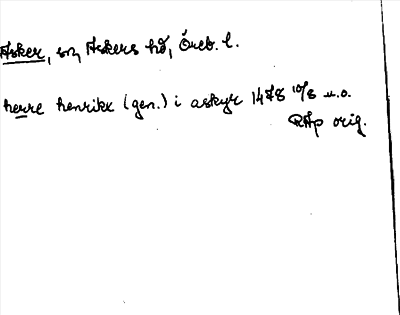 Asker, sn, Askers hd, Öreb. l.
herre henrikx (gen.) i askyr 1478 10/8 u.o.
RAp orig.